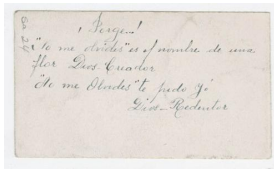 ¡ Jorge_!
"No me olvides" es el nombre de una
flor Dios_Creador
"No me Olvides" te pido yo
Dios_Redentor